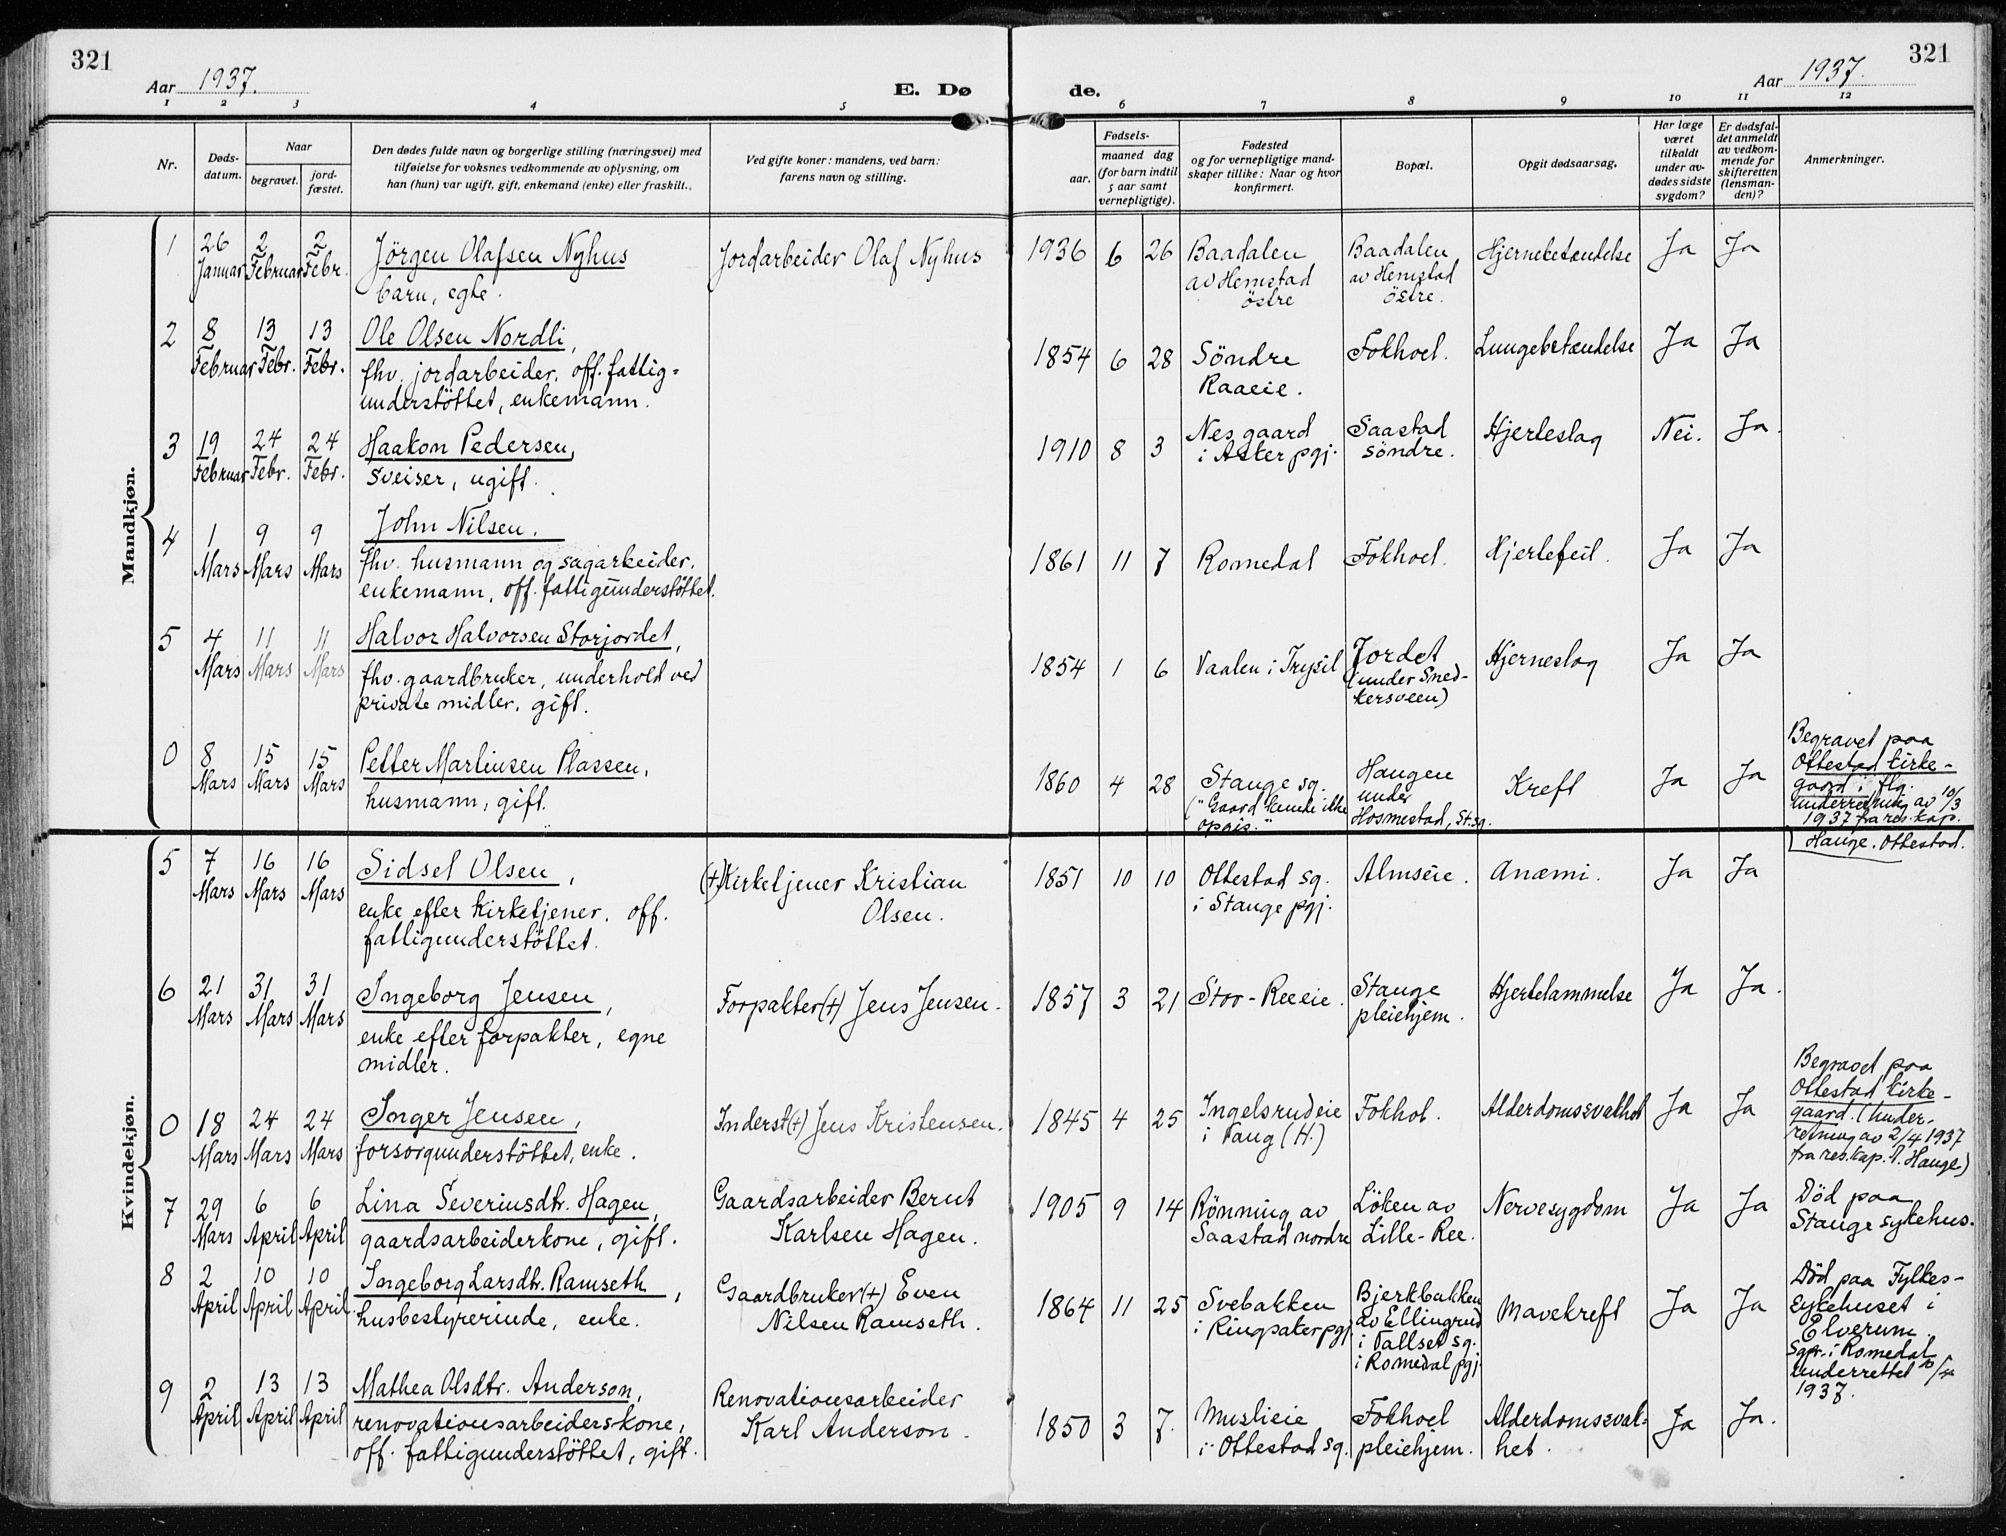 321
Aar 1937.
E. Dø
de.
Aar 1937.
321
1 2 3 4 5 6 7 8 9 10 11 12
Nr.
Døds-
datum.
Naar
begravet.
jord-
fæstet.
Den dødes fulde navn og borgerlige stilling (næringsvei) med
tilføielse for voksnes vedkommende av oplysning, om
han (hun) var ugift, gift, enkemand (enke) eller fraskilt.
Ved gifte koner: mandens, ved barn:
farens navn og stilling.
Fødsels-
aar.
maaned dag
(for barn indtil
5 aar samt
vernepligtige).
Fødested
og for vernepligtige mand-
skaper tillike: Naar og hvor
konfirmert.
Bopæl.
Opgit dødsaarsag.
Har læge
været
tilkaldt
under av-
dødes sidste
sygdom?
Er dødsfal-
det anmeldt
av vedkom-
mende for
skifteretten
(lensman-
den)?
Anmerkninger.
Mandkjøn.
1
26
Januar
2
Februar
2
Febr.
Jörgen Olafsen Nyhus
barn, egte.
Jordarbeider Olaf Nyhus
1936 6 26
Baadalen
av Hemstad
östre
Baadalen
av Hemstad
östre.
Hjernebetændelse
Ja
Ja
2
8
Februar
13
Febr.
13
Febr.
Ole Olsen Nordli,
fhv. jordarbeider, off. fattig-
understöttet, enkemann.
1854 6 28
Söndre
Raaeie.
Fokhoel.
Lungebetændelse
Ja
Ja
3
19
Februar
24
Febr.
24
Febr.
Haakon Pedersen,
sveiser, ugift.
1910 8 3
Nes gaard
i Asker pgj.
Saastad
söndre.
Hjerteslag
Nei.
Ja.
4
1
Mars
9
Mars
9
Mars
John Nilsen.
fhv. husmann og sagarbeider,
enkemann, off. fattigunderstöttet.
1861 11 7
Romedal
Fokhoel.
Hjertefeil.
Ja
Ja
5
4
Mars
11
Mars
11
Mars
Halvor Halvorsen Storjordet,
fhv. gaardbruker, underhold ved
private midler, gift.
1854 1 6
Vaalen i Trysil
Jordet
(under Smed-
kersveen)
Hjerneslag
Ja
Ja
0
8
Mars
15
Mars
15
Mars
Petter Martinsen Plassen,
husmann, gift.
1860 4 28
Stange sg.
("Gaard kunde ikke
opgis."
Haugen
under
Hosmestad, St. sg.
Kreft
Ja
Ja
Begravet paa
Ottestad kirke-
gaard i flg.
underretning av 10/3
1937 fra res. kap.
Hauge. Ottestad.
Kvindekjøn.
5
7
Mars
16
Mars
16
Mars
Sidsel Olsen,
enke efter kirketjener, off.
fattigunderstöttet.
(+)Kirketjener Kristian
Olsen.
1851 10 10
Ottestad sg.
i Stange pgj.
Almseie.
Anæmi.
Ja
Ja
6
21
Mars
31
Mars
31
Mars
Ingeborg Jensen,
enke efter forpakter, egne
midler.
Forpakter(+) Jens Jensen.
1857 3 21
Stor-Reeeie.
Stange
pleiehjem.
Hjertelammelse
Ja
Ja.
0
18
Mars
24
Mars
24
Mars
Inger Jensen,
forsorgunderstöttet, enke.
Inderst(+) Jens Kristensen.
1845 4 25
Ingelsrudeie
i Vang (H.)
Fokhol.
Alderdomssvakhet
Ja
Ja
Begravet paa
Ottestad kirke-
gaard. (under-
retning av 2/4 1937
fra res. kap. A. Hauge)
7
29
Mars
6
April
6
April
Lina Severinsdtr. Hagen,
gaardsarbeiderkone, gift.
Gaardsarbeider Bernt
Karlsen Hagen.
1905 9 14
Rönning av
Saastad nordre
Löken av
Lille-Ree.
Nervesygdom
Ja
Ja
Död paa
Stange sykehus.
8
2
April
10
April
10
April.
Ingeborg Larsdtr. Ramseth,
husbestyrerinde, enke.
Gaardbruker(+) Even
Nilsen Ramseth.
1864 11 25
Svebakken
i Ringsaker pgj.
Bjerkbakken
av Ellingrud
i Vallset sg.
i Romedal pgj.
Mavekreft
Ja
Ja
Död paa Fylkes-
sykehuset i
Elverum.
Sgpr. i Romedal
underrettet 10/4
1937.
9
2
April
13
April
13
April
Mathea Olsdtr. Anderson,
renovationsarbeiders-kone,
off. fattigunderstöttet, gift.
Renovationsarbeider
Karl Anderson.
1850 3 7.
Muslieie
i Ottestad sg.
Fokhoel
pleiehjem.
Alderdomssvak-
het.
Ja
Ja.